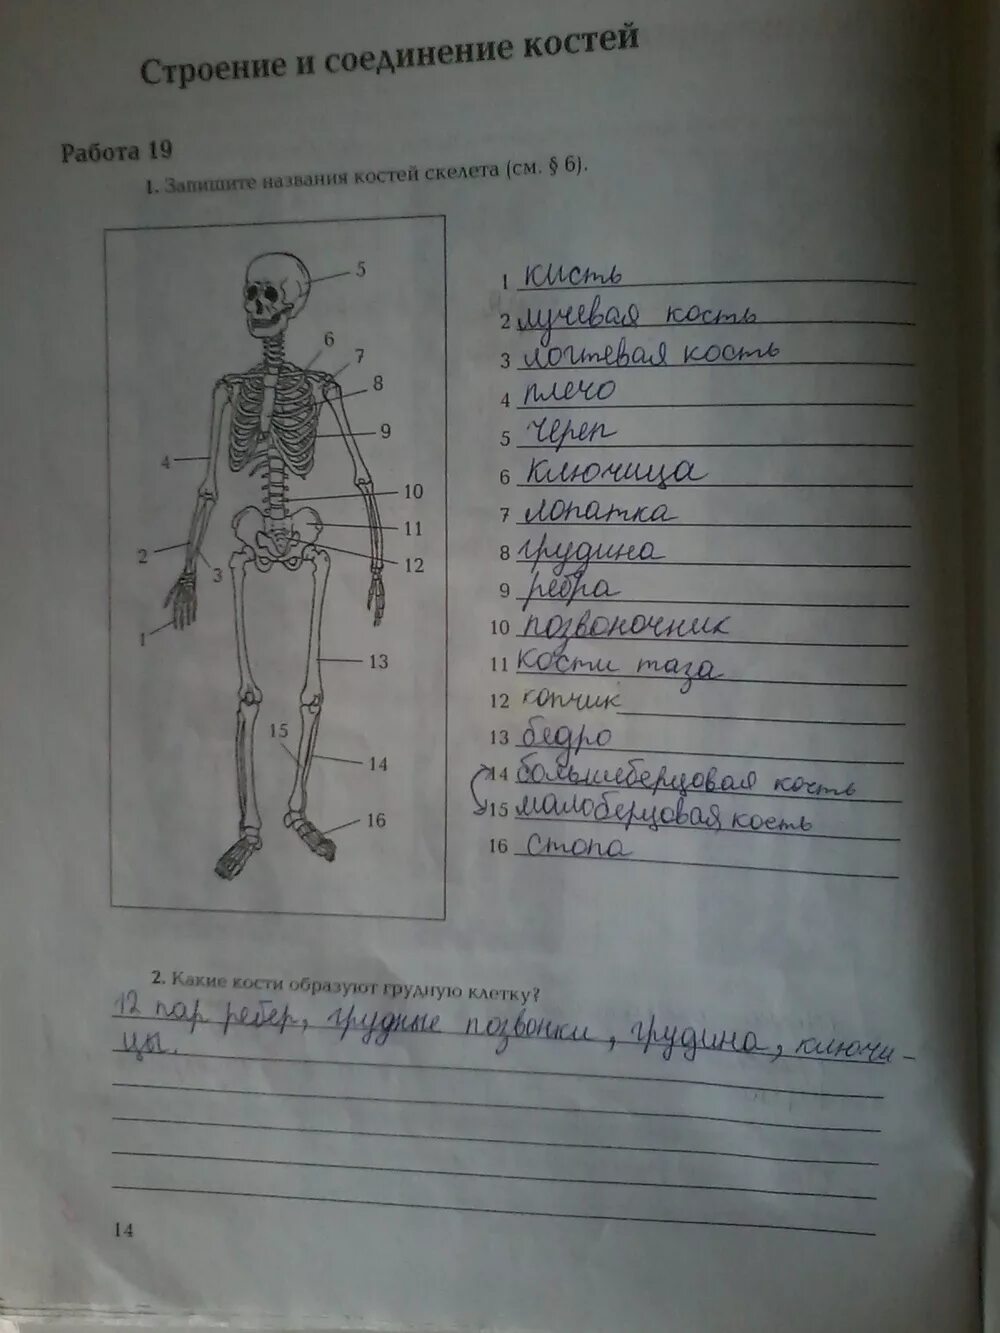 Строение и соединение костей
Работа 19
1. Запишите названия костей скелета (см. § 6).
5
6
7
8
9
4
10
11
2
12
3
1
13
15
14
16
1 кисть
2 лучевая кость
3 локтевая кость
4 плечо
5 череп
6 ключица
7 лопатка
8 грудина
9 ребра
10 позвоночник
11 кости таза
12 копчик
13 бедро
14 большеберцовая кость
15 малоберцовая кость
16 стопа
2. Какие кости образуют грудную клетку?
12 пар ребер, грудные позвонки, грудина, ключи-
цы.
14